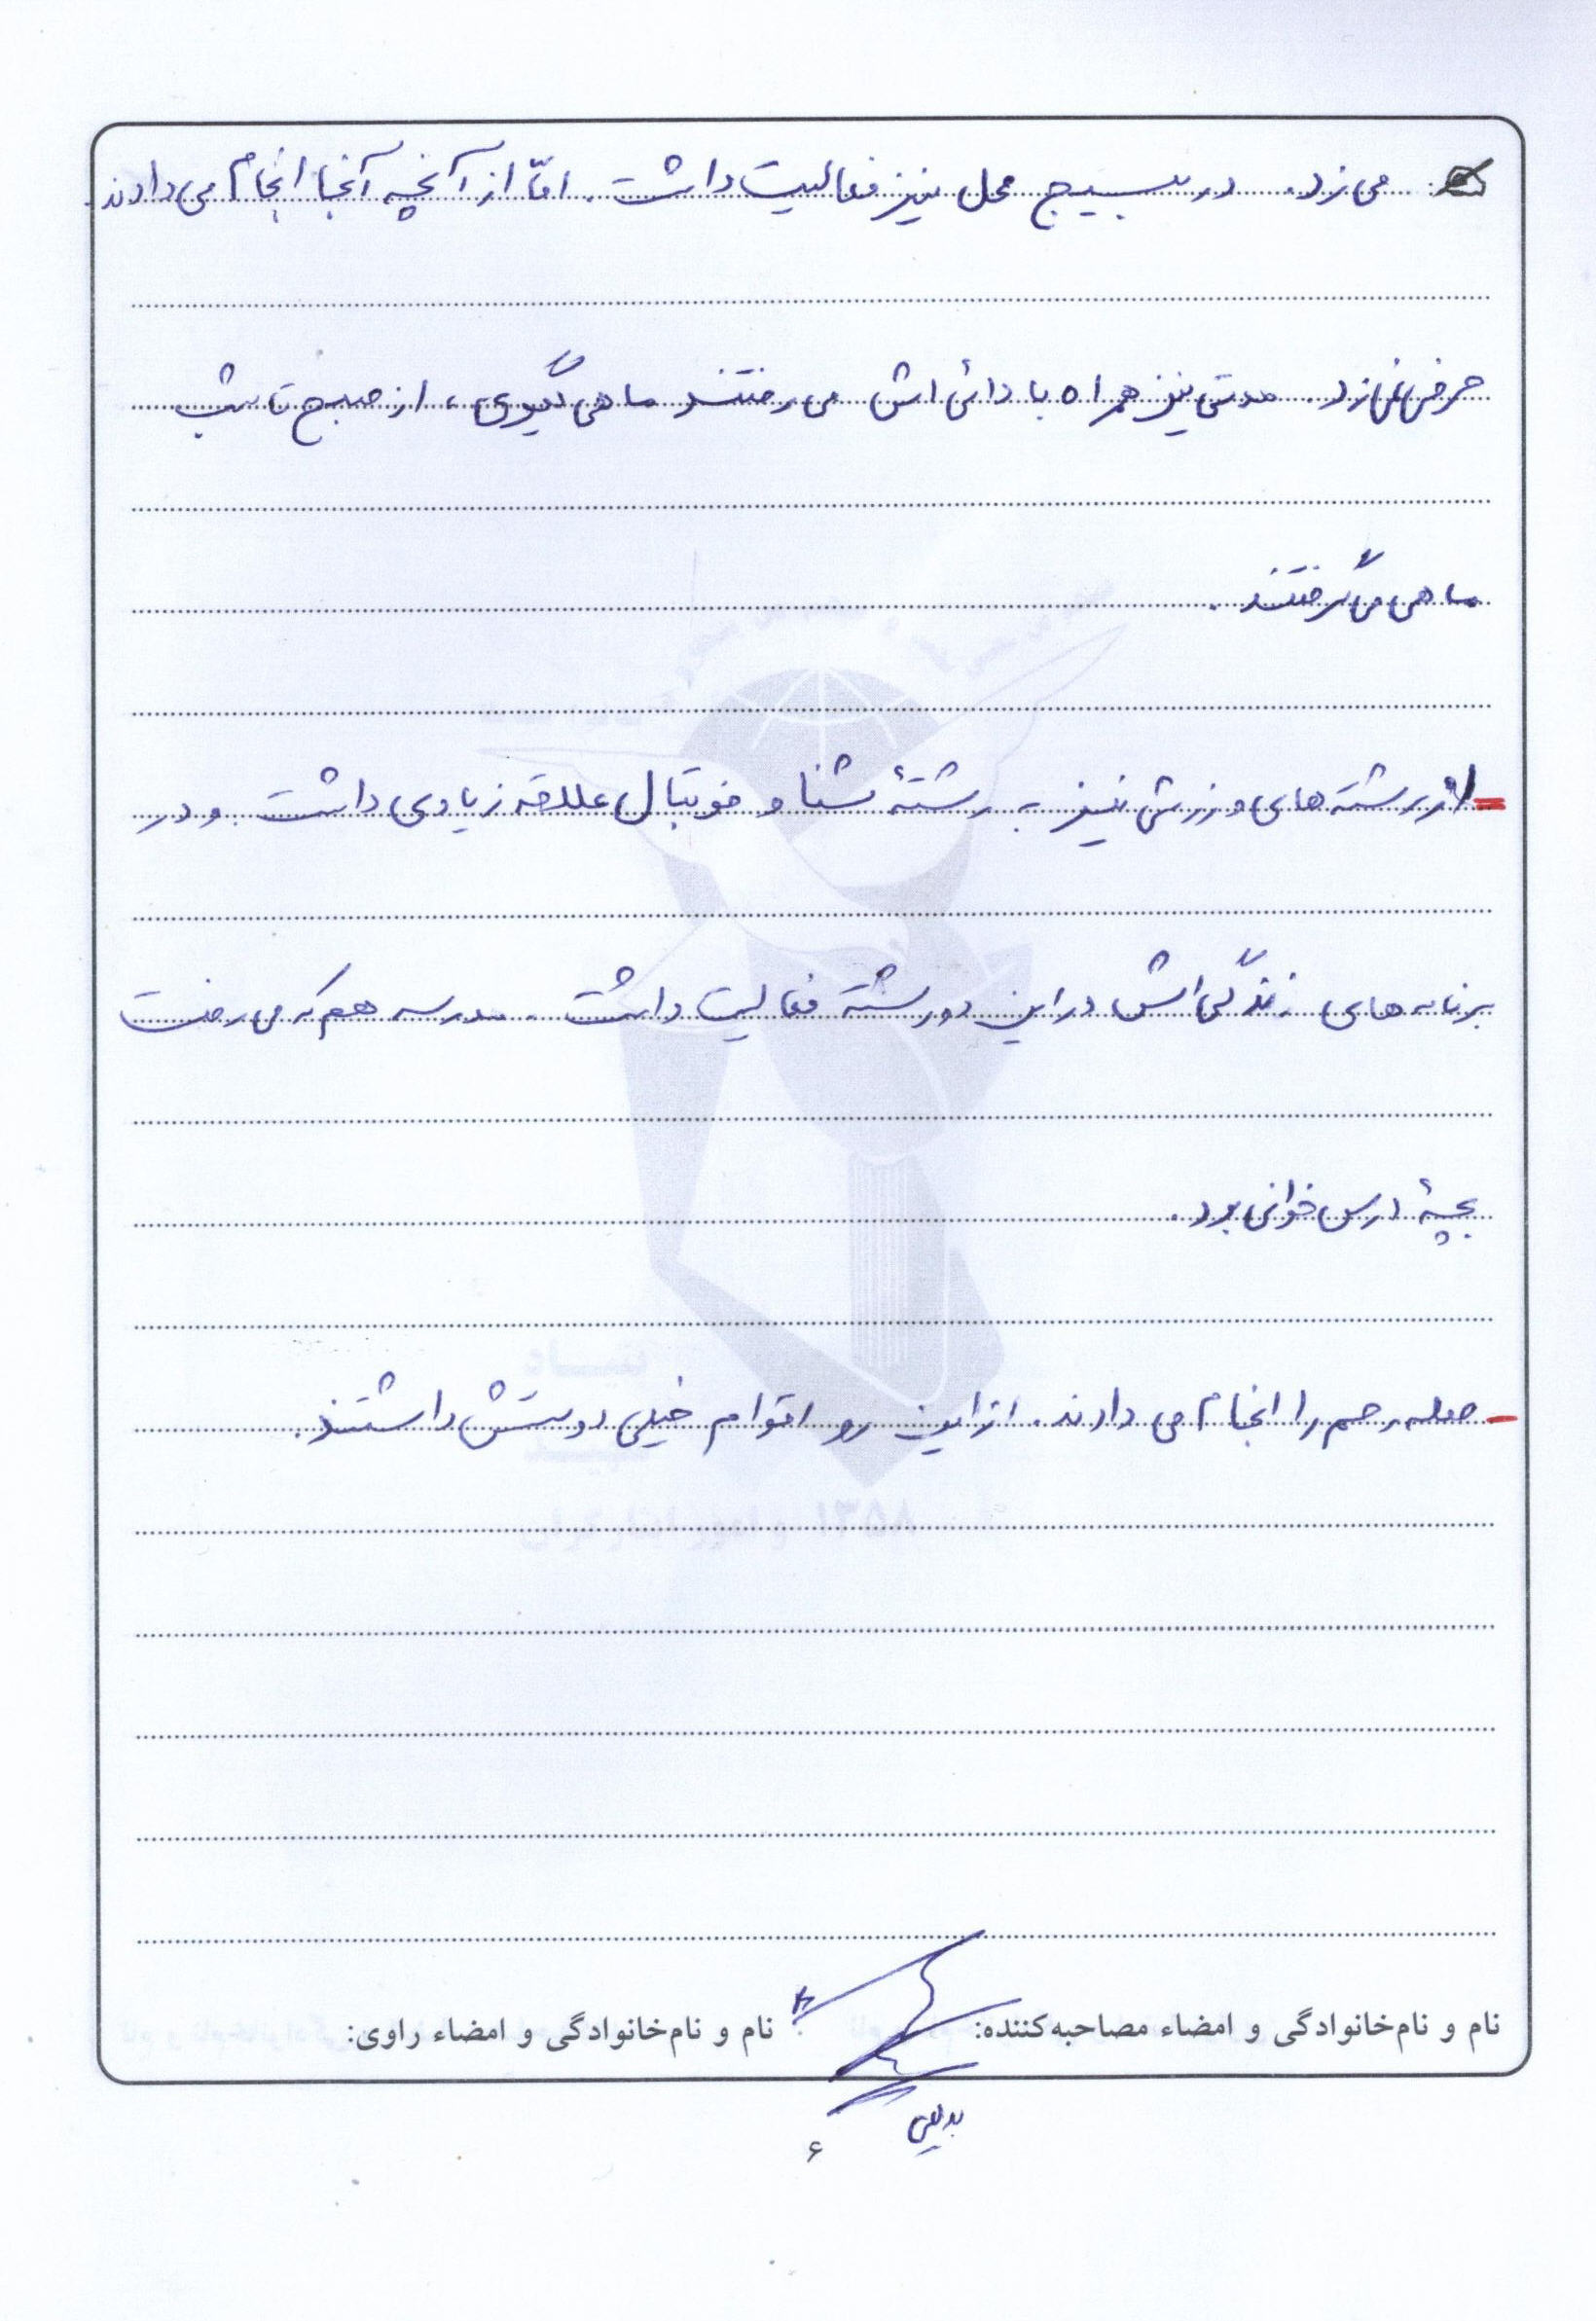 می زد. در بسیج محل نیز فعالیت داشت. امّا از آنچه آنجا انجام می دادند.
حرفی نمی زد. مدتی نیز همراه با دائی اش می رفتند ماهی گیری، از صبح تا شب
ماهی می گرفتند.
- از رشته های ورزشی نیز به رشتهٔ شنا و فوتبال علاقه زیادی داشت و در
برنامه های زندگی اش در این دو رشته فعالیت داشت. مدرسه هم که می رفت
بچهٔ درس خوانی بود.
- صله رحم را انجام می دادند. از این رو اقوام خیلی دوستش داشتند.
نام و نام‌خانوادگی و امضاء مصاحبه‌کننده: نام و نام‌خانوادگی و امضاء راوی:
۶